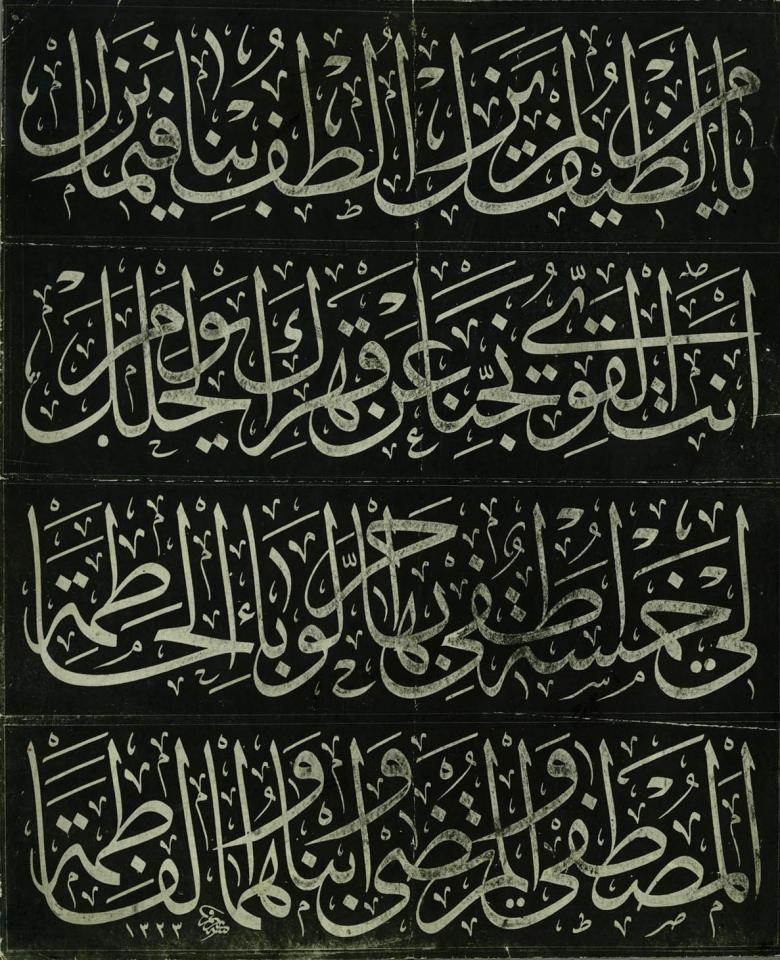 يا من لطيف لم يزل الطف بنا فيما نزل
انت القوي نجنا عن قهرك يوم الخلل
لي خمسة اطفي بها حر الوباء الحاطمة
المصطفى والمرتضى وابناهما والفاطمة
١٣٢٣